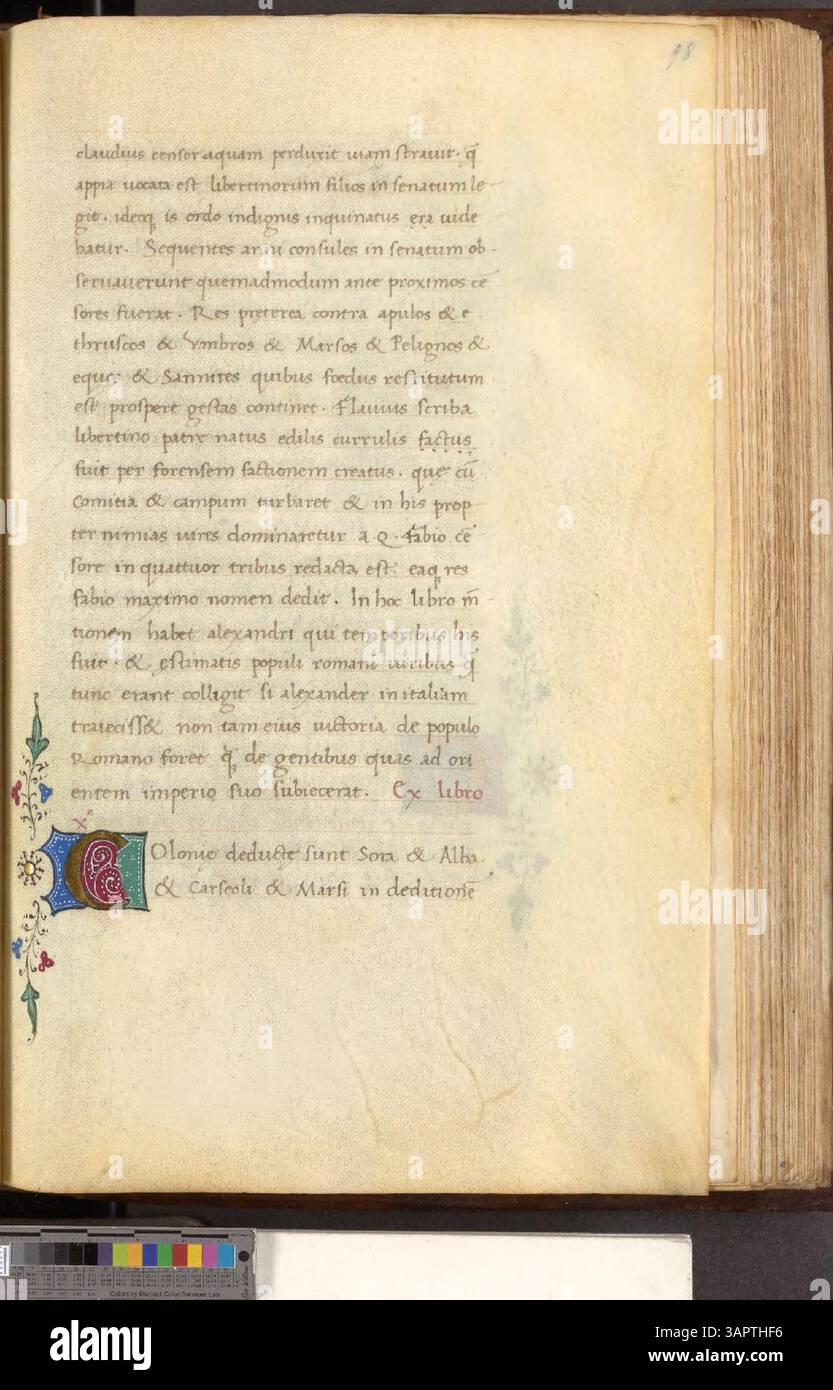 98
claudius censor aquam perduxit uiam strauit. q̄
appia uocata est libertinorum filios in senatum le-
git. ideoq; is ordo indignis inquinatus era uide
batur. Sequentes anni consules in senatum ob-
seruauerunt quemadmodum ante proximos cē
sores fuerat. Res pręterea contra apulos & e
thruscos & Vmbros & Marsos & Pelignos &
equos & Samnites quibus foedus restitutum
est prospere gestas continet. Flauius scriba
libertino patre natus edilis currulis factus
fuit per forensem factionem creatus. que cū
Comitia & campum turbaret & in his prop
ter nimias uires dominaretur a Q. Fabio cē
sore in quattuor tribus redacta est. eaq; res
fabio maximo nomen dedit. In hoc libro m̄
tionem habet alexandri qui temporibus his
fuit. & ęstimatis populi romani uiribus q̄
tunc erant colligit si alexander in italiam
traiecisset non tam eius uictoria de populo
Romano foret q̄ de gentibus quas ad ori
entem imperio suo subiecerat. Ex libro
x°
COlonię deductę sunt Sora & Alba
& Carseoli & Marsi in deditionē
Colors by Munsell Color Services Lab
alamy
Image ID: 3APTHF6
www.alamy.com